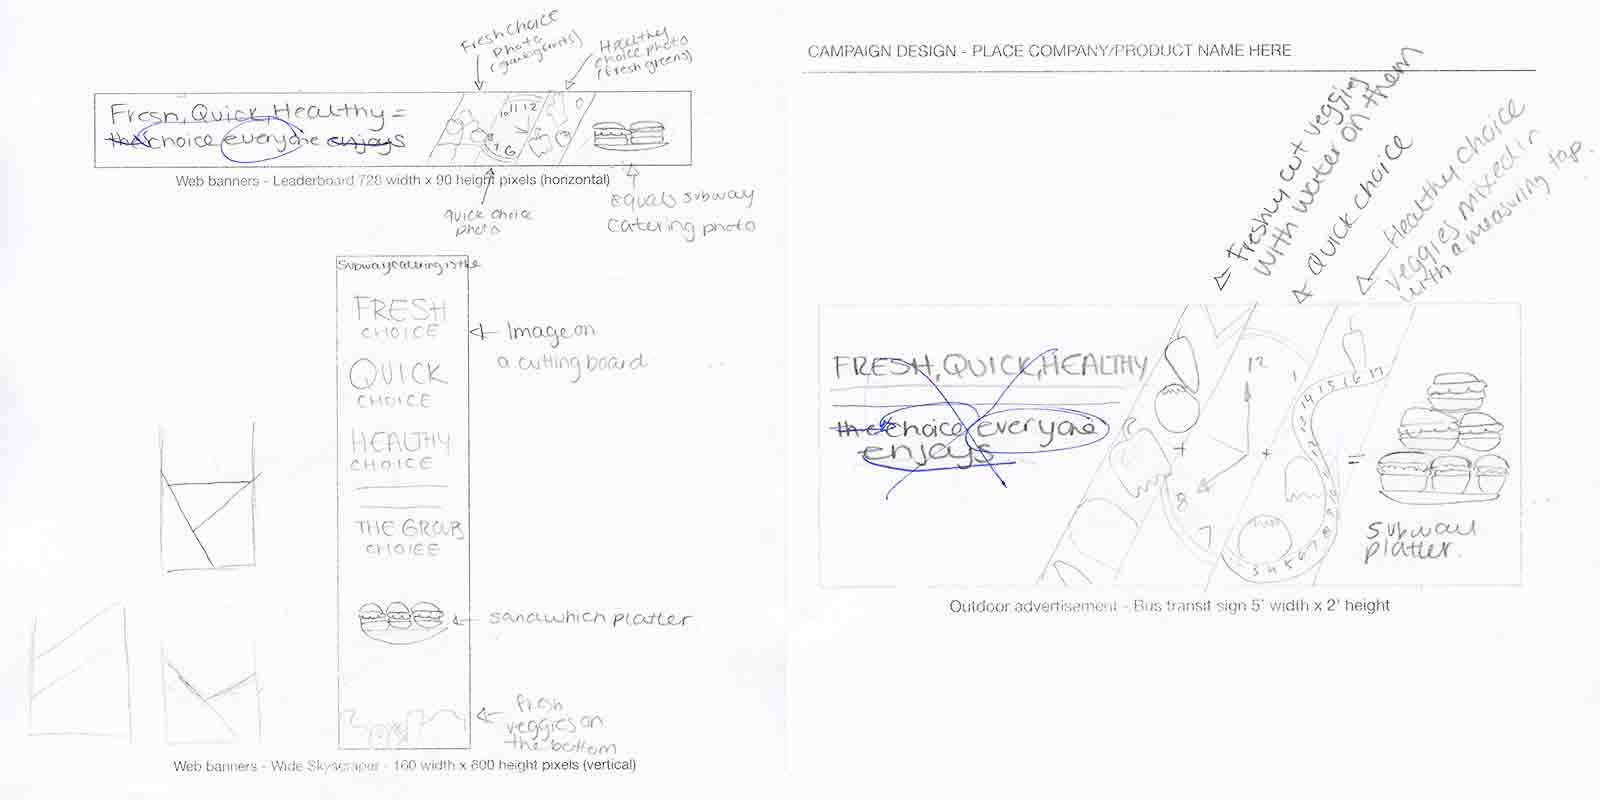 Fresh choice
photo
(
Healthy
choice photo
(fresh greens)
Fresh, Quick, Healthy =
the choice everyone enjoys
10 11 12
7 6
Web banners - Leaderboard 728 width x 90 height pixels (horizontal)
quick choice
photo
equals subway
catering photo
Subway catering is the
FRESH
CHOICE
QUICK
CHOICE
HEALTHY
CHOICE
THE GROUPS
CHOICE
Image on
a cutting board
sandwhich platter
fresh
veggies on
the bottom
Web banners - Wide Skyscraper - 160 width x 600 height pixels (vertical)
CAMPAIGN DESIGN - PLACE COMPANY/PRODUCT NAME HERE
Freshly cut veggies
with water on them
Quick choice
Healthy choice
veggies mixed in
with a measuring tap.
FRESH, QUICK, HEALTHY
the choice everyone
enjoys
12
1
8
7
+
+
=
3 4 5 6 7 8 9 10 11 12 13 14 15 16 17
subway
platter.
Outdoor advertisement - Bus transit sign 5' width x 2' height